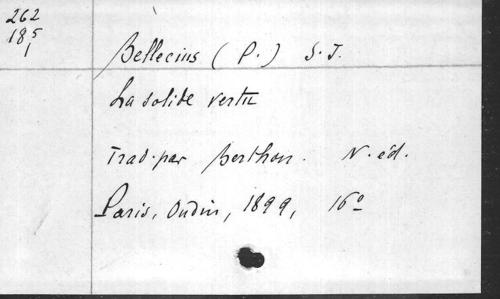 262
185
1
Bellecius (P.) S.J.
La solide vertu
Trad. par Berthon. N. éd.
Paris, Oudin, 1899, 16º